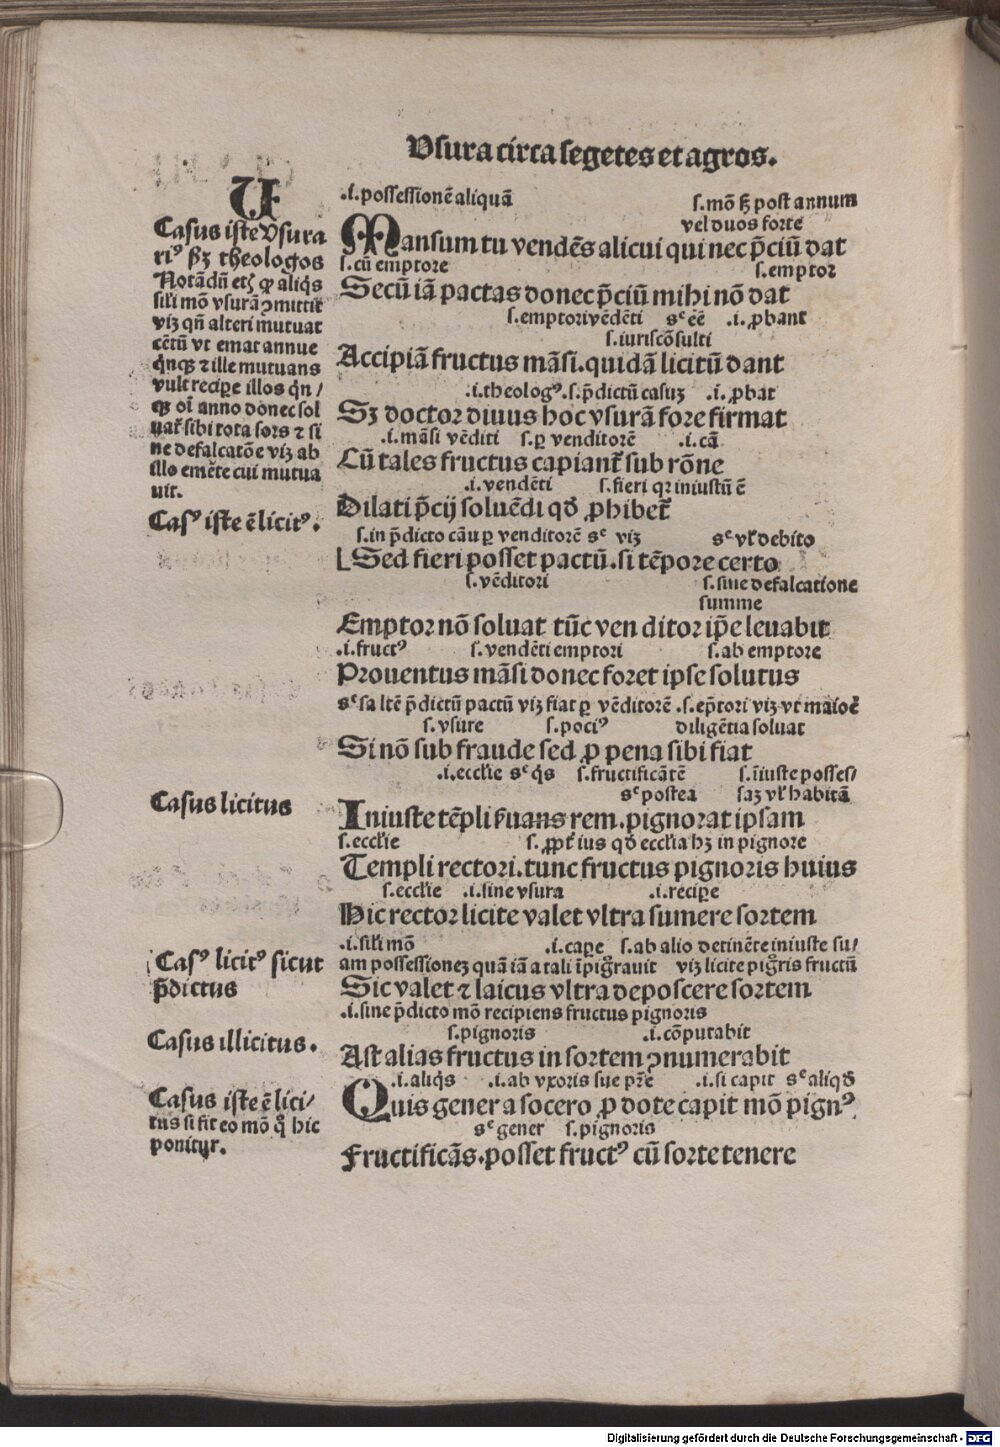 Vsura circa segetes et agros.
V
Casus iste vsura
ri⁹ sꝫ theologos
Notādū etiā ꝙ aliq̄s
sil̄i mō vsurā ꝯmittit
viꝫ qn̄ alteri mutuat
cētū vt emat annue
qͥnqꝫ ⁊ ille mutuans
vult recipe̱ illos qͥn/
qꝫ oī anno donec sol
uat̄ sibi tota sors ⁊ si
ne defalcatōe viꝫ ab
illo emēte cui mutua
uit.
Cas⁹ iste ē licit⁹.
Casus licitus
Cas⁹ licit⁹ sicut
p̄dictus
Casus illicitus.
Casus iste ē lici/
tus si fit eo mō qͦ hic
ponitur.
.i. possessionē aliquā s. mō sꝫ post annum
vel duos forte
Mansum tu vendēs alicui qui nec p̄ciū dat
s. cū emptore s. emptor
Secū iā pactas donec p̄ciū mihi nō dat
s. emptori vēdēti sᶜ eē .i. ꝓbant
s. iuriscōsulti
Accipiā fructus māsi. quidā licitū dant
.i. theolog⁹ .s. p̄dictū casuꝫ .i. ꝓbat
Sꝫ doctor diuus hoc vsurā fore firmat
.i. māsi vēditi s. ꝑ venditorē .i. cā
Cū tales fructus capiant̄ sub rōne
.i. vendēti s. fieri qꝛ iniustū ē
Dilati p̄cij soluēdi qd̄ ꝓhibet̄
s. in p̄dicto cāu ꝑ venditorē sᶜ viꝫ sᶜ vl̄ debito
Sed fieri posset pactū. si tēpore certo
s. vēditori s. sine defalcatione
summe
Emptor nō soluat tūc venditor ip̄e leuabit
.i. fruct⁹ s. vendēti emptori s. ab emptore
Prouentus māsi donec foret ipse solutus
sᶜ saltē p̄dictū pactū viꝫ fiat ꝑ vēditorē .s. ep̄tori viꝫ vt maiori
s. vsure s. poci⁹ diligētia soluat
Si nō sub fraude sed ꝓ pena sibi fiat
.i. eccl̄ie sᶜ qͥs s. fructificātē s. iniuste posses/
sᶜ postea saꝫ vl̄ habitā
Iniuste tēpli ẜuans rem. pignorat ipsam
s. eccl̄ie s. ꝓpt̄ ius qd̄ eccl̄ia hꝫ in pignore
Templi rectori. tunc fructus pignoris huius
s. eccl̄ie .i. sine vsura .i. recipe̱
Hic rector licite valet vltra sumere sortem
.i. sil̄i mō .i. cape̱ s. ab alio detinēte iniuste su/
am possessionez quā iā a tali īpigͦrauit viꝫ licite pigͦris fructū
Sic valet ⁊ laicus vltra deposcere sortem
.i. sine p̄dicto mō recipiens fructus pignoris
s. pignoris .i. cōputabit
Ast alias fructus in sortem ꝯnumerabit
.i. aliqͥs .i. ab vxoris sue pr̄e .i. si capit sᶜ aliqd̄
Quis gener a socero ꝓ dote capit mō pign⁹
sᶜ gener s. pignoris
Fructificās. posset fruct⁹ cū sorte tenere
Digitalisierung gefördert durch die Deutsche Forschungsgemeinschaft - DFG